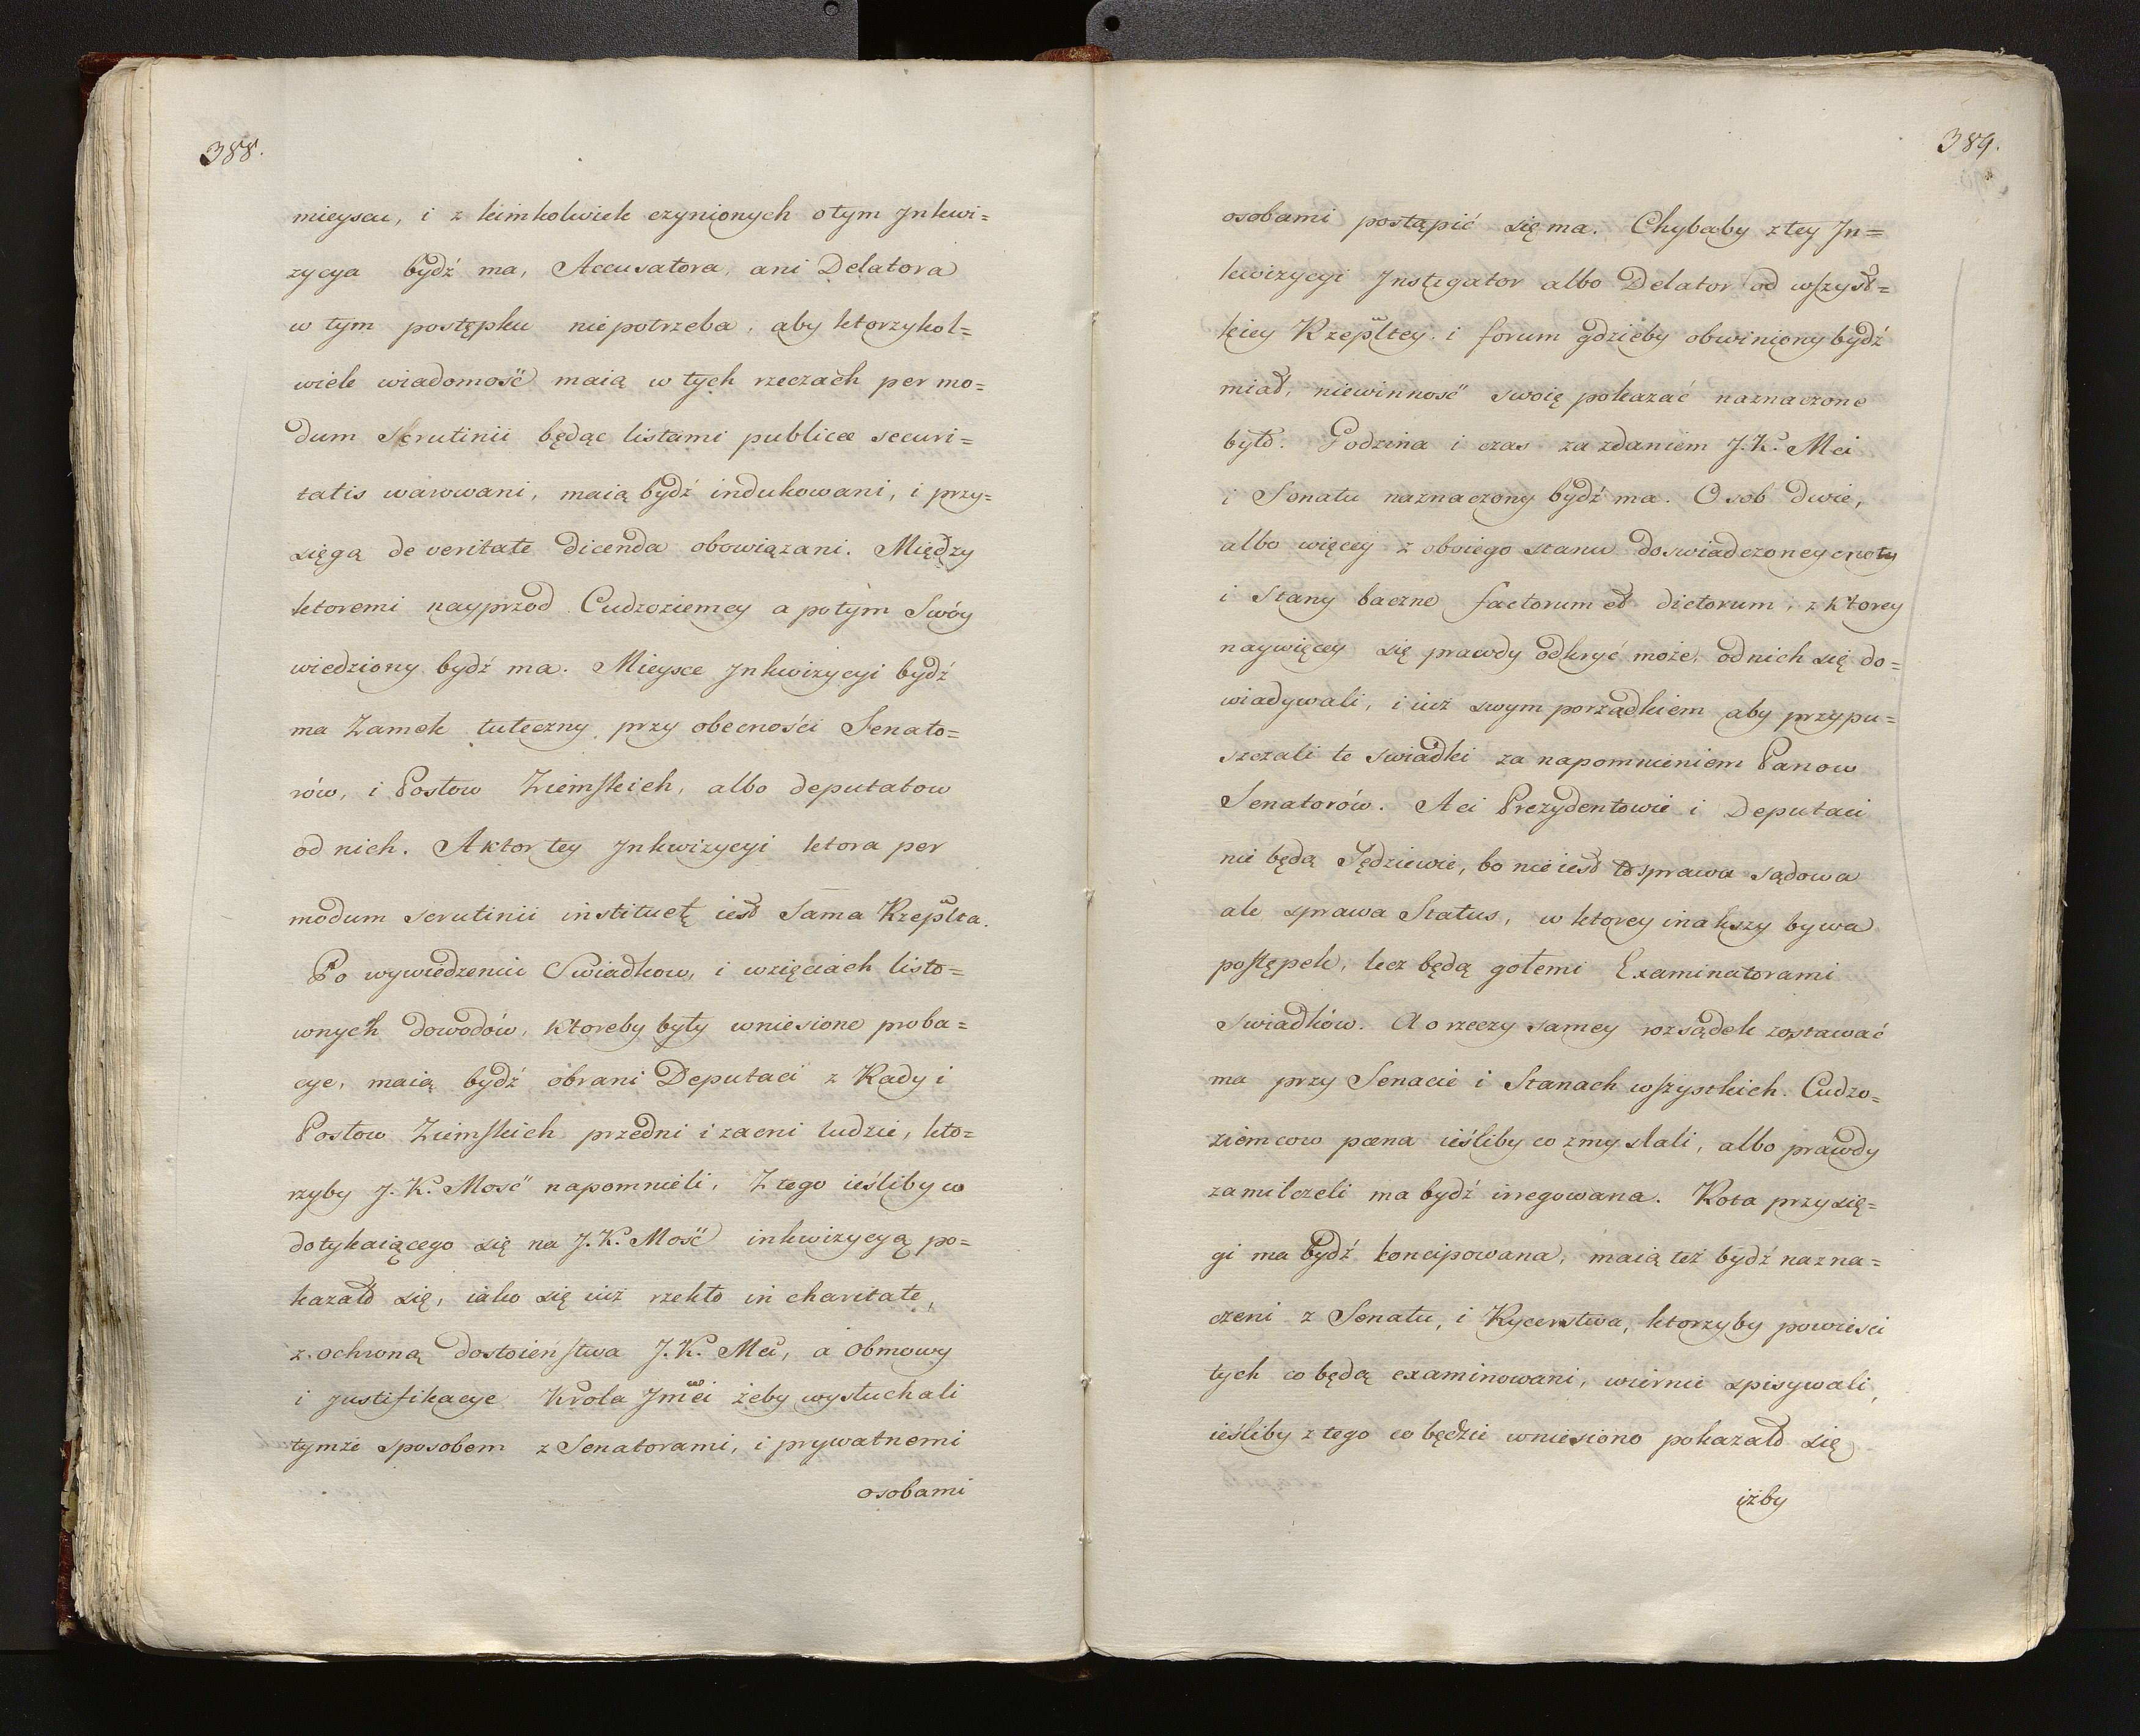 388.
mieyscu, i z kimkolwiek czynionych o tym Jnkwi=
zycya bydź ma, Accusatora, ani Delatora
w tym postępku niepotrzeba, aby ktorzykol=
wiek wiadomość maią w tych rzeczach per mo=
dum skrutinii będąc listami publicæ securi=
tatis warowani, maią bydź indukowani, i przy=
sięgą de veritate dicenda obowiązani. Między
ktoremi nayprzod Cudzoziemcy a potym Swóy
wiedziony bydź ma. Mieysce Jnkwizycyi bydź
ma Zamek tuteczny przy obecności Senato=
rów, i Posłow Ziemskich, albo deputatow
od nich. Aktor tey Jnkwizycyi ktora per
modum scrutinii instituctę iest sama Rzeplta.
Po wywiedzeniu Swiadkow, i wzięciach listo=
wnych dowodów, ktoreby były wniesione proba=
cye, maią bydź obrani Deputaci z Rady i
Posłow Ziemskich przedni i zacni ludzie, kto=
rzyby J. K. Mość napomnieli, Z tego ieśliby co
dotykaiącego się na J. K. Mość inkwizycyą po=
kazało się, iako się iuż rzekło in charitate,
z ochroną dostoieństwa J. K. Mci, a obmowy
i justifikacye Krola Jmci żeby wysłuchali
tymże sposobem z Senatorami, i prywatnemi
osobami
389.
osobami postąpić się ma. Chybaby z tey Jn=
kwizycyi Jnstigator albo Delator od wszyst=
kiey Rzepltey i forum gdzieby obwiniony bydź
miał, niewinność swoię pokazać naznaczone
było. Godzina i czas za zdaniem J. K. Mci
i Senatu naznaczony bydź ma. Osob dwie,
albo więcey z oboiego stanu doswiadczoney cnoty
i Stany baczne factorum et dictorum, z ktorey
naywięcey się prawdy odkryć może, od nich się do=
wiadywali, i iuż swym porządkiem aby przypu=
szczali te swiadki za napomnieniem Panow
Senatorów. A ci Prezydentowie i Deputaci
nie będą Sędziewie, bo nie iest to sprawa sądowa
ale sprawa Status, w ktorey inakszy bywa
postępek, lecz będą gołemi Examinatorami
Swiadków. A o rzeczy samey rozsądek zostawać
ma przy Senacie i Stanach wszystkich. Cudzo=
ziemcow pœna ieśliby co zmyslali, albo prawdy
zamilczeli ma bydź irregowana. Rota przysię=
gi ma bydź koncipowana, maią też bydź nazna=
czeni z Senatu, i Rycerstwa, ktorzyby powieści
tych co będą examinowani, wiernie spisywali,
ieśliby z tego co będzie wniesiono pokazało się
iżby